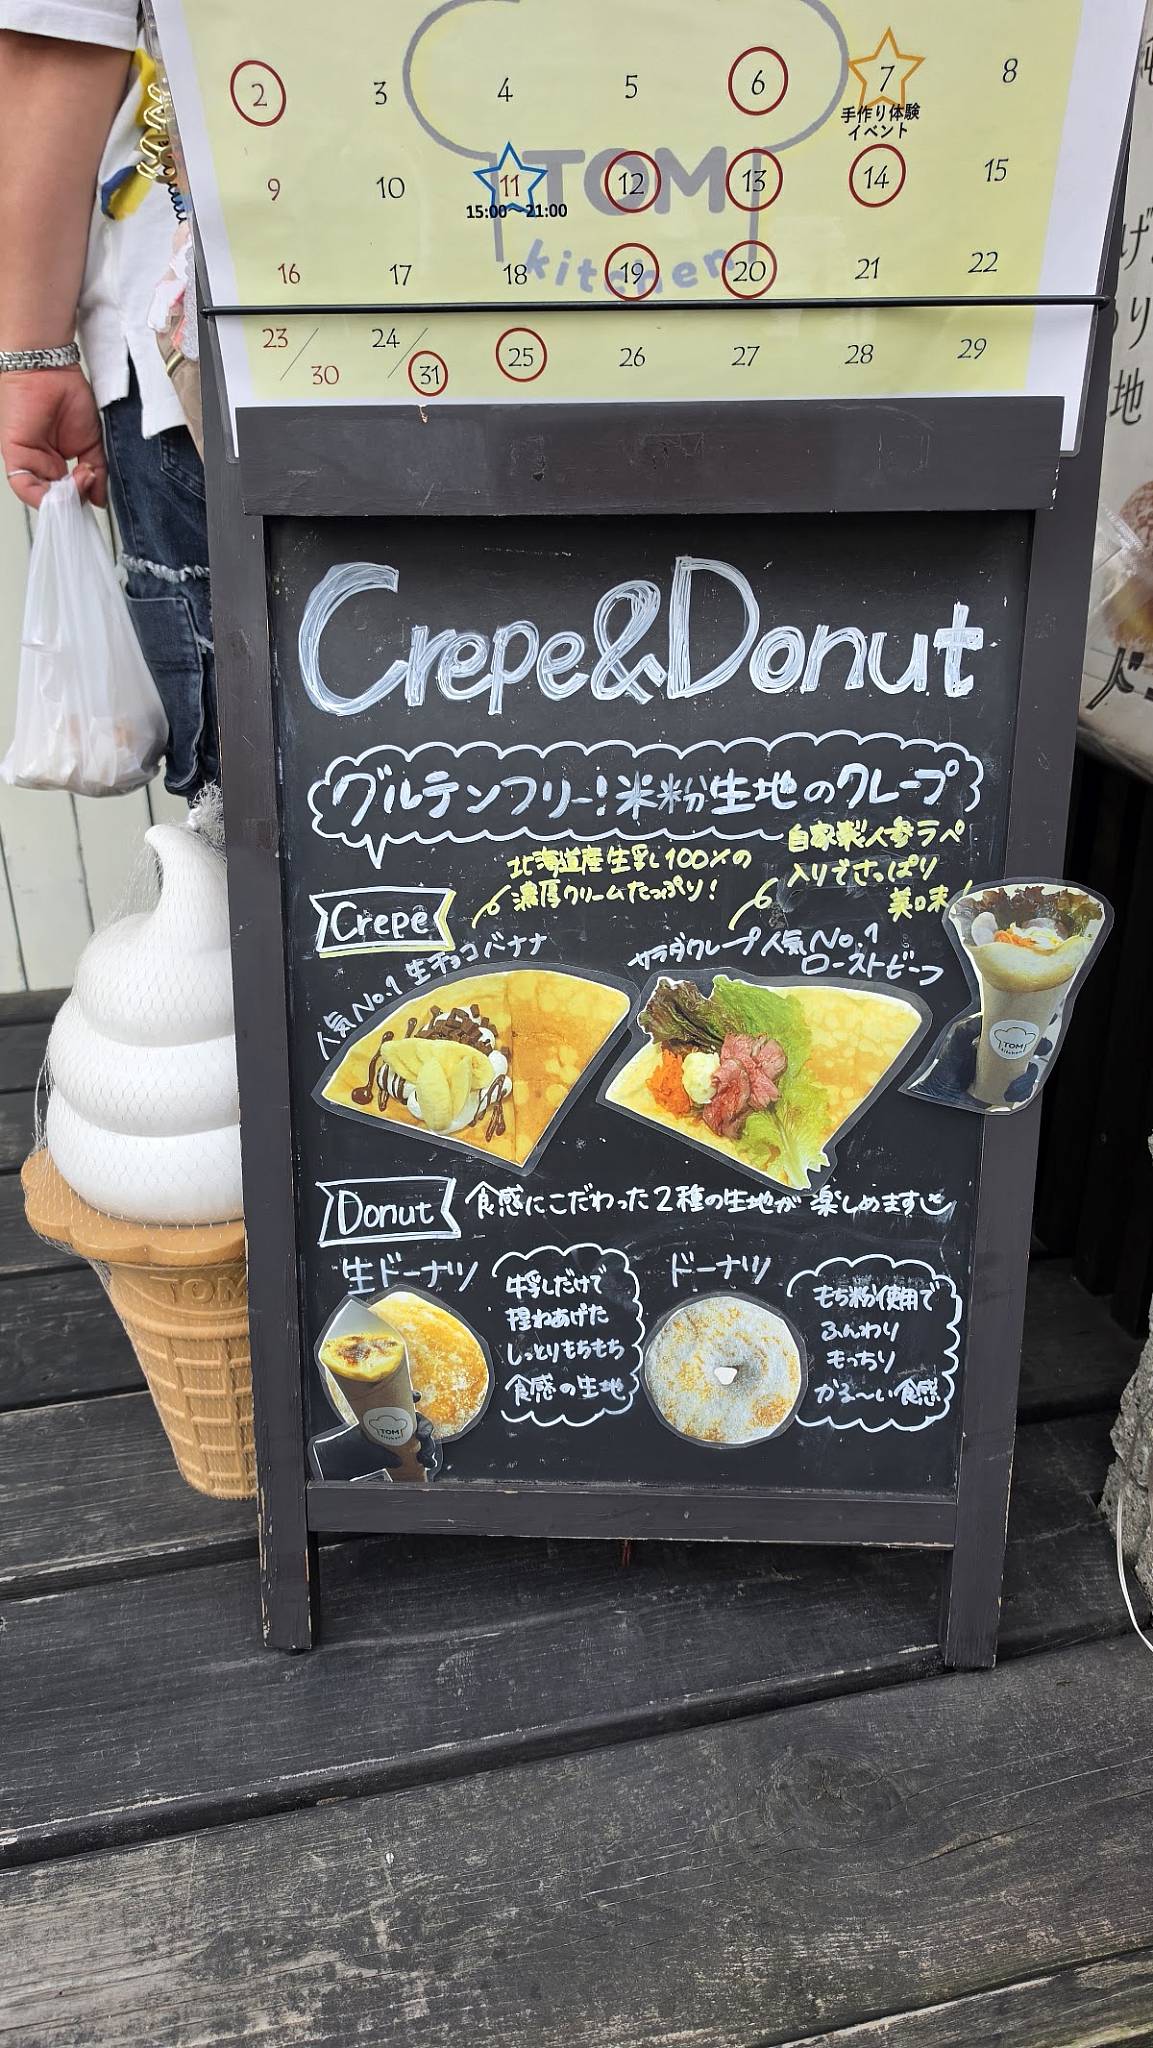 2 3 4 5 6 7 8
手作り体験
イベント
9 10 11 12 13 14 15
15:00~21:00
TOM
kitchen
16 17 18 19 20 21 22
23/30 24/31 25 26 27 28 29
Crepe&Donut
グルテンフリー!米粉生地のクレープ
Crepe
北海道産生乳100%の
濃厚クリームたっぷり!
自家製人参ラペ
入りでさっぱり
美味
人気No.1 生チョコバナナ
サラダクレープ人気No.1
ローストビーフ
TOM
kitchen
Donut
食感にこだわった2種の生地が楽しめます
生ドーナツ
牛乳だけで
捏ねあげた
しっとりもちもち
食感の生地
ドーナツ
もち粉使用で
ふんわり
もっちり
かる〜い食感
TOM
kitchen
TOM